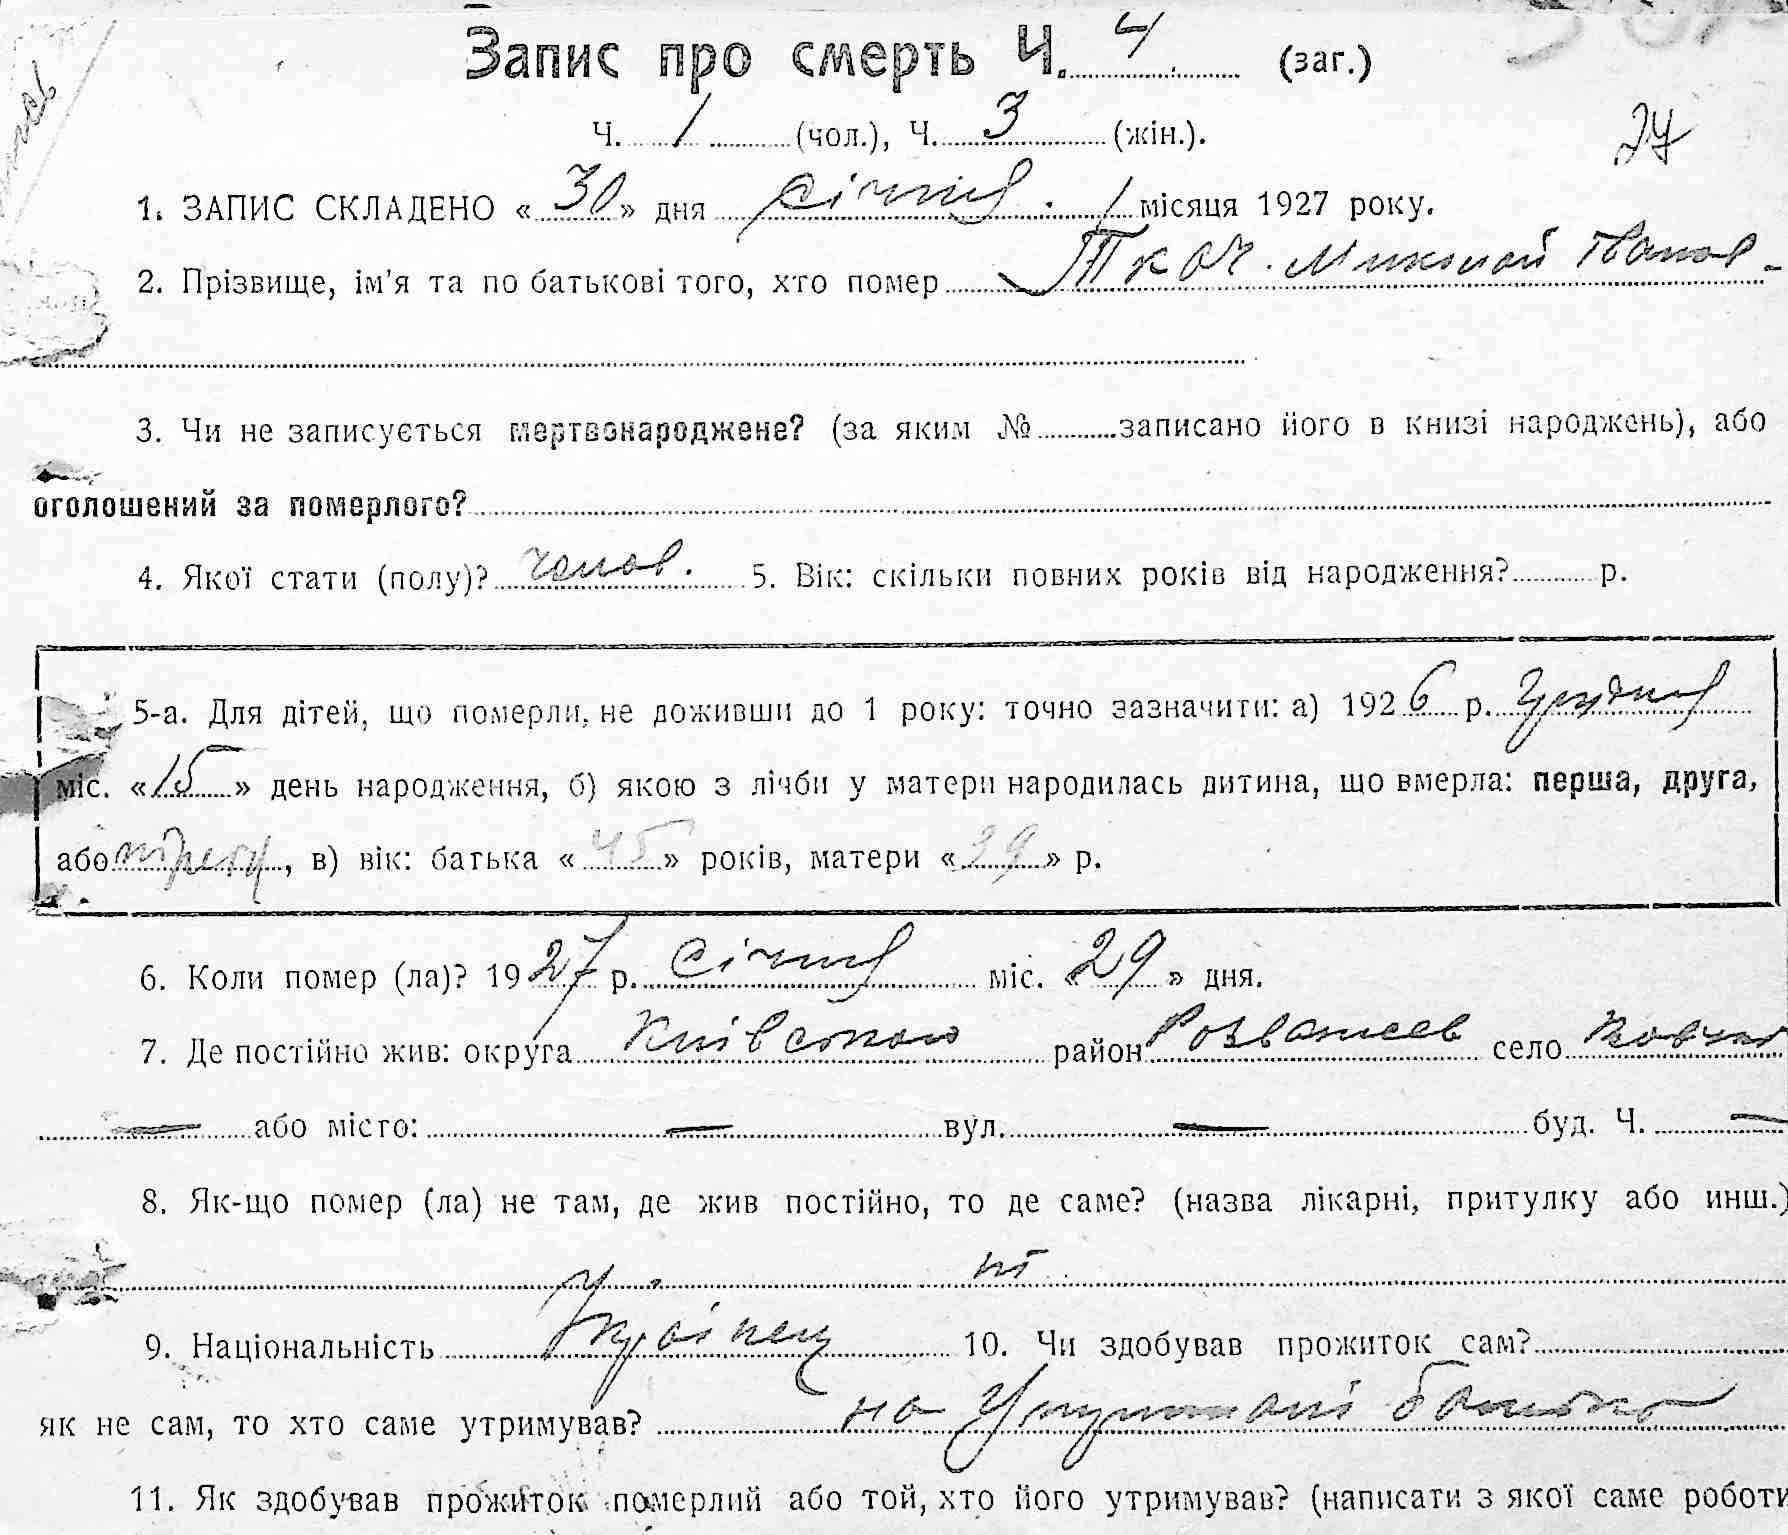 Запис про смерть Ч. 4 (заг.)
Ч. 1 (чол.), Ч. 3 (жін.).
27
1. ЗАПИС СКЛАДЕНО «30» дня січня місяця 1927 року.
2. Прізвище, ім'я та по батькові того, хто помер Ткач Миколай Іванов-
3. Чи не записується мертвонароджене? (за яким № записано його в книзі народжень), або
оголошений за померлого?
4. Якої стати (полу)? чолов. 5. Вік: скільки повних років від народження? р.
5-а. Для дітей, що померли, не доживши до 1 року: точно зазначити: а) 1926 р. Грудня
міс. «15» день народження, б) якою з лічби у матери народилась дитина, що вмерла: перша, друга,
або третя, в) вік: батька «45» років, матери «39» р.
6. Коли помер (ла)? 1927 р. Січня міс. «29» дня.
7. Де постійно жив: округа Київською район Розважев село
— або місто: — вул. — буд. Ч. —
8. Як-що помер (ла) не там, де жив постійно, то де саме? (назва лікарні, притулку або инш.)
ні
9. Національність Українец 10. Чи здобував прожиток сам?
як не сам, то хто саме утримував? на Утриманні батька
11. Як здобував прожиток померлий або той, хто його утримував? (написати з якої саме роботи